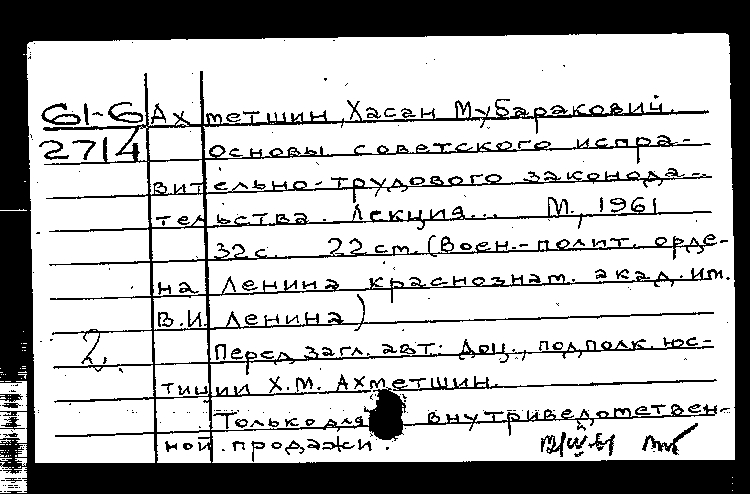 61-6 Ахметшин, Хасан Мубаракович.
2714 Основы советского испра-
вительно-трудового законода-
тельства. Лекция... М., 1961
32 с. 22 см. (Воен.-полит. орде-
на Ленина краснознам. акад. им.
В.И. Ленина)
2. Перед загл. авт: Доц., подполк. юс-
тиции Х.М. Ахметшин.
Только для внутриведомствен-
ной продажи.